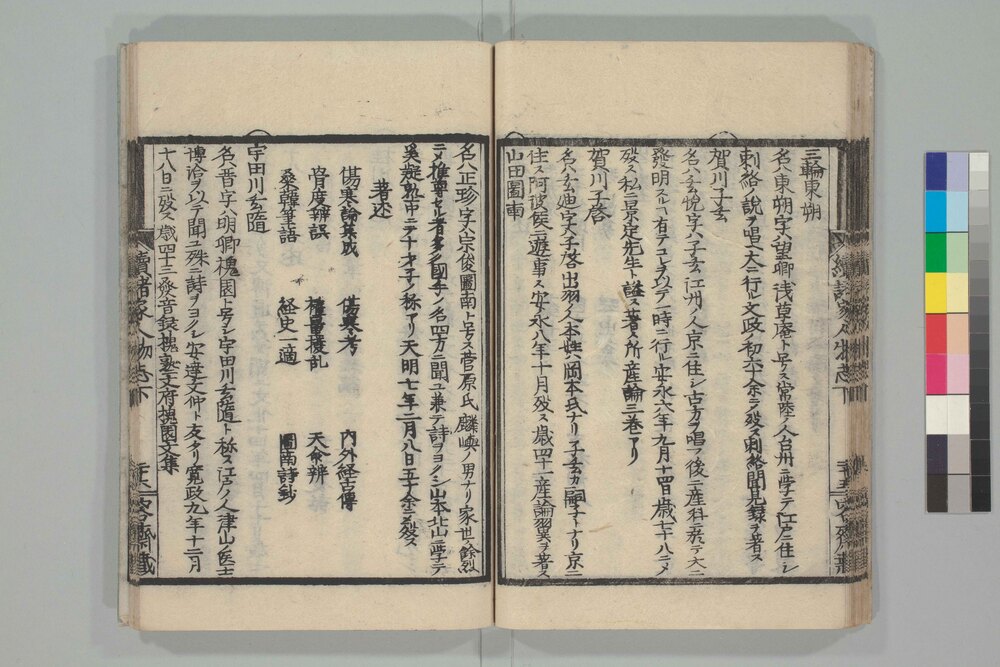 三輪東朔
名ハ東朔字ハ望卿浅草庵ト号ス常陸ノ人台州ニ学テ江戸ニ住シ
刺絡ノ説ヲ唱ヘ大ニ行ル文政ノ初六十余ニテ歿ス刺絡聞見録ヲ著ス
賀川子玄
名ハ玄悦字ハ子玄江州ノ人京ニ住シ古方ヲ唱フ後ニ産科ニ於テ大ニ
發明スル有テコレヲ以テ一時ニ行ル安永六年九月十四日歳七十八ニメ
歿ス私ニ景定先生ト謚ス著ス所産論三巻アリ
賀川子啓
名ハ玄迪字ハ子啓出羽ノ人本姓ハ岡本氏ナリ子玄カ嗣子トナリ京ニ
住ス阿波侯ニ遊事ス安永八年十月歿ス歳四十一産論翼ヲ著ス
山田圖南
名ハ正珍字ハ宗俊圖南ト号ス菅原氏麟嶼ノ男ナリ家世ノ餘烈
ニメ推尊セル者多ク國手ノ名四方ニ聞ユ兼テ詩ヲヨクシ山本北山ニ学テ
奚疑塾中ニテ十才子ノ称アリ天明七年二月八日五十余ニテ歿ス
著述
傷寒論集成 傷寒考 内外経古傳
䏿度辨誤 權量撥乱 天命辨
桑韓筆語 経史一適 圖南詩鈔
宇田川玄隨
名ハ晋字ハ明卿槐園ト号シ宇田川玄隨ト称ス江戸ノ人津山ノ医士
博洽ヲ以テ聞ユ殊ニ詩ヲヨクシ安達文仲ト友タリ寛政九年十二月
十八日ニ歿ス歳四十三發音録槐園文集
續諸家人物志下